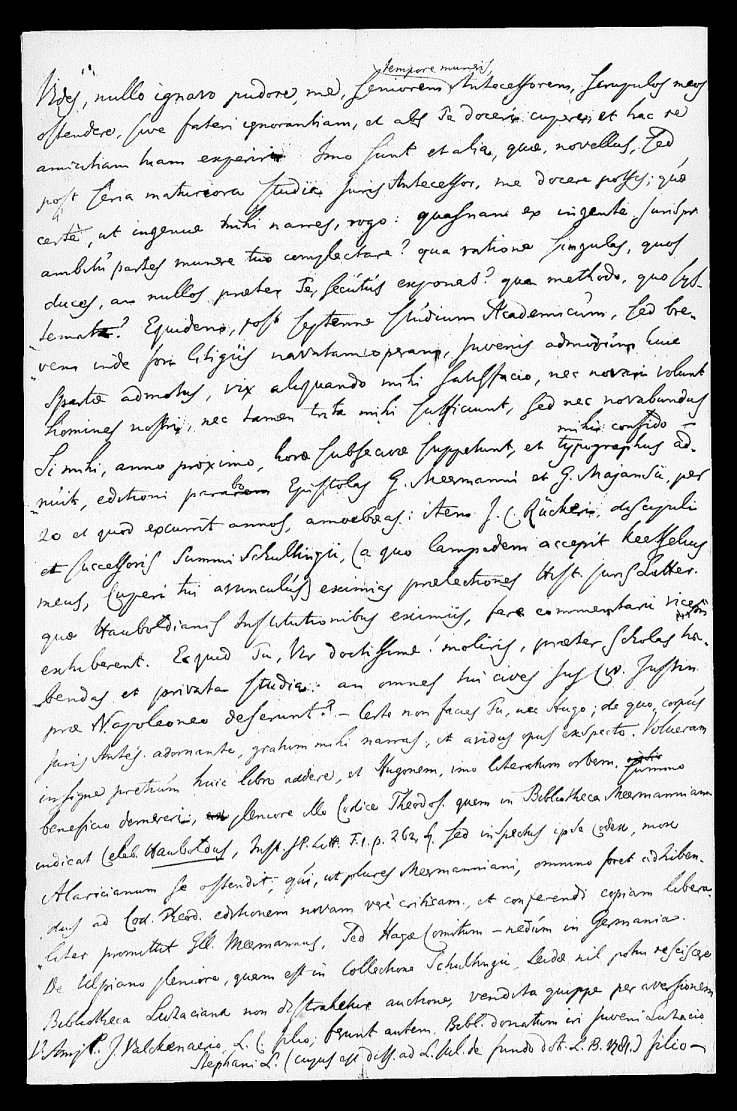 tempore muneris
Vides, nullo ignaro pudore, me, seniorem Antecessorem, scrupulos meos
ostendere, sive fateri ignorantiam, et abs Te doceri cupere, et hac re
amicitiam tuam experiri. Imo sunt et alia, quæ, novellus, sed
post seria maturiora studia juris Antecessor, me docere possis; quæ
certe, ut ingenue mihi narres, rogo: quasnam ex ingente jurispr.
ambitu partes munere tuo complectare? qua ratione singulas, quos
duces, an nullos præter Te, secutus exponas? qua methodo, quo sys-
temate? Equidem, post septenne studium Academicum, sed bre-
vem inde fori litigiis navatam operam, juvenis admodum huic
Spartæ admotus, vix aliquando mihi satisfacio, nec nova volunt
homines nostri, nec tamen trita mihi sufficiunt, sed nec novabundus
mihi confido
Si mihi, anno proximo, horæ subsecivæ suppetunt, et typographus ad-
nuit, editioni parabo Epistolas G. Meermanni et G. Majansii, per
20 et quod excurrit annos, amoebæas; item J. C. Rückeri, discipuli
et successoris summi Schultingii, (a quo lampadem accepit Kesselius
meus, superi tui avunculus) eximias prælectiones Hist. juris Litter.
quæ Hauboldianis Institutionibus eximiis, fere commentarii vicem
exhiberent. Ecquid Tu, Vir doctissime! moliris, præter scholas ha-
bendas et privata studia: an omnes tui cives Jus Civ. Justin.
præ Napoleoneo deserunt? – Certe non facies Tu, nec Hugo; de quo, corpus
juris Antej. adornante, gratum mihi narras, et avidus opus exspecto. Volueram
insigne pretium huic libro addere, et Hugonem, imo literatum orbem, summo
beneficio demereri, pleniore illo Codice Theodos. quem in Bibliotheca Meermanniana
indicat Celeb. Hauboldus, Inst. J. R. Litt. T. 1. p. 262, 4. Sed inspectus ipse Codex, more
Alaricianum se ostendit; qui, ut plures Meermanniani, omnino foret adhiben-
dus ad Cod. Theod. editionem novam vere criticam, et conferendi copiam libera-
liter promittit Ill. Meermannus, sed Hagæ Comitum – nedum in Germania.
De Ulpiano pleniore, quem est in Collectione Schultingii, Leidæ nil potui resciscere
Bibliotheca Luzaciana non distrahetur auctione, vendita quippe per aversionem
V. Ampl. J. Valckenaerio, L. C. filio; ferunt autem, Bibl. donatum iri juveni Luzacio
Stephani L. (cujus est diss. ad L. Jul. de fundo dot. L. B. 1781.) filio –